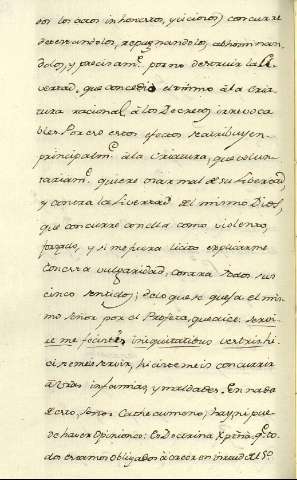 con los actos inhonestos, y viciosos) concurre
detestandolos, repugnandolos, abominan-
dolos, y precisam.te por no destruir la Li-
vertad, que concedió el mismo à la Cria-
tura racional, à los Decretos irrevoca-
bles. Por eso estos efectos se atribuyen
principalm.te à la Criatura, que volun-
tariam.te quiere usar mal de su Libertad,
y contra la Livertad del mismo Dios,
que concurre con ella como violento,
forzado, y si me fuera licito explicarme
con esta vulgaridad, contra todos sus
cinco sentidos; de lo que se quexa el mis-
mo Señor por el Profeta, que dice: servi-
re me fecistis iniquitatibus vestris: hi-
cisteme servir, hicisteme concurrir
à vras infamias, y maldades. En nada
de esto, Señor Cathecumeno, hay ni pue-
de haver Opiniones: Es Doctrina Xptña q.e to-
dos estamos obligados à creer en virtud del S.º